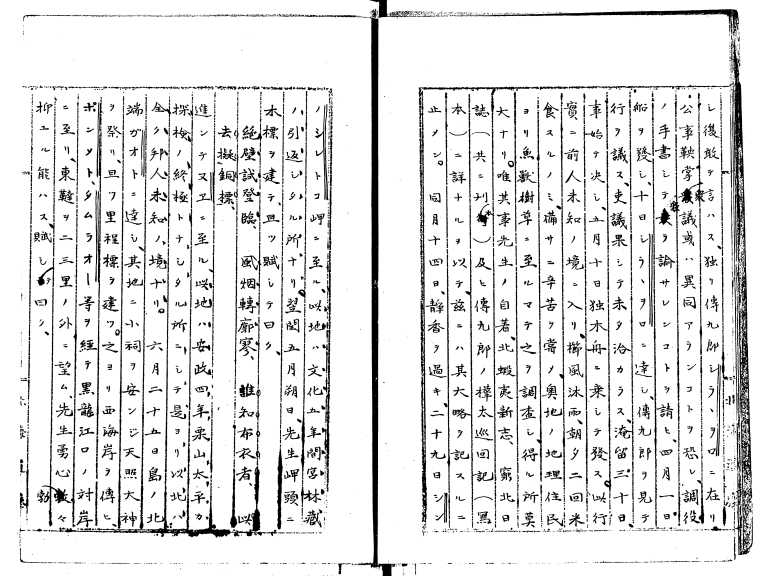 シ後敢テ言ハス、独リ傳九郎シラヽヲロニ在リ
公事鞅掌衆議或ハ異同アランコトヲ恐レ調役
ノ手書シテ衆ヲ論サレンコトヲ請ヒ、四月一日
船ヲ發シ、十日シラヽヲロニ達シ、傳九郎ヲ見テ
行ヲ議ス、吏議果シテ未タ洽カラス淹留三十日、
事始テ決シ、五月十日独木舟ニ乗シテ發ス、此行
實ニ前人未知ノ境ニ入リ、櫛風沐雨、朝夕二回米
食スルノミ、備サニ辛苦ヲ嘗ノ奥地ノ地理住民
ヨリ魚獣樹草ニ至ルマテ之ヲ調査シ、得ル所莫
大ナリ。唯其事先生ノ自著、北蝦夷新志、窮北日
誌(共ニ刊)及ヒ傳九郎ノ樺太巡回記(寫
本)ニ詳ナルヲ以テ、茲ニハ其大略ヲ記スルニ
止メン。同月十四日、静香ヲ過キ二十九日シン
ノシレトコ岬ニ至ル、此地ハ文化五年間宮林蔵
ノ引返シタル所ナリ、翌閏五月朔日、先生岬頭ニ
木標ヲ建テ且ツ賦シテ曰ク、
絶壁試登臨、風烟轉廓寥、誰知布衣者、以
去擬銅標、
進ンテヌヱニ至ル、此地ハ安政四年栗山太平カ
探検ノ終極トナシタル所ニシテ是ヨリ以北ハ
全ク邦人未知ノ境ナリ。六月二十五日島ノ北
端ガオトニ達シ、其地ニ小祠ヲ安ンジ天照大神
ヲ祭リ、且ツ里程標ヲ建ツ。之ヨリ西海岸ヲ傳ヒ、
ボンメト、タムラオー等ヲ経テ黒龍江口ノ対岸
ニ至リ、東韃ヲ二三里ノ外ニ望ム、先生勇心勃々
抑エル能ハス、賦シテ曰ク、